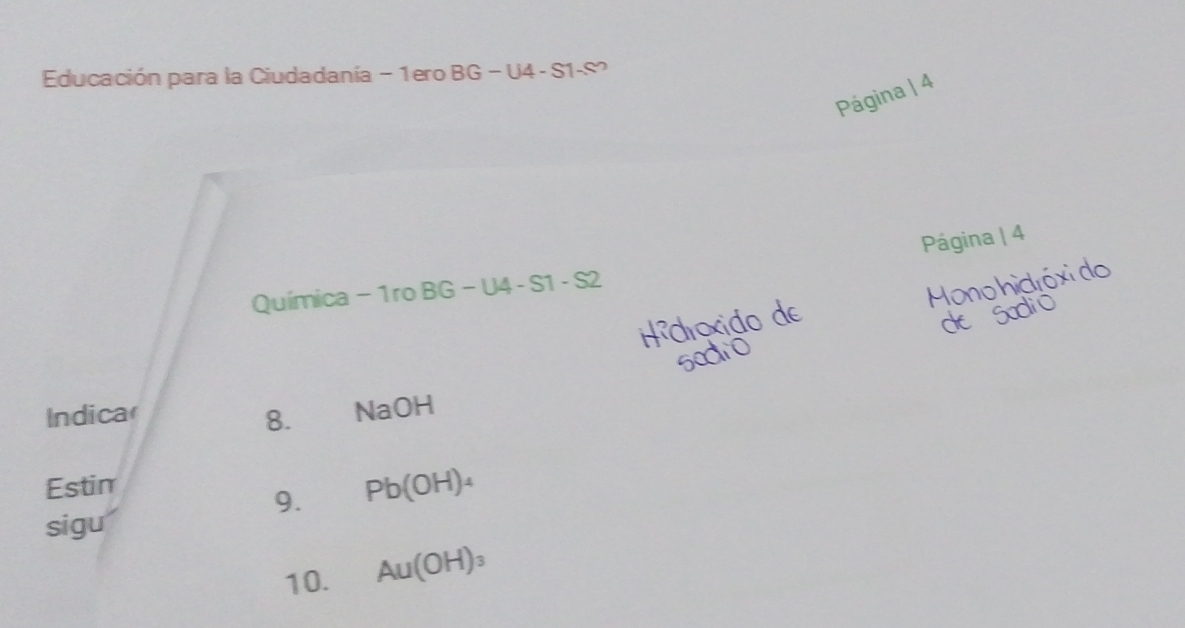 Educación para la Ciudadanía – 1ero BG – U4 - S1-S2
Página | 4
Página | 4
Química – 1ro BG – U4 - S1 - S2
Hidroxido de
sodio
Monohidróxido
de sodio
Indicar
8. NaOH
9. Pb(OH)₄
sigu
10. Au(OH)₃